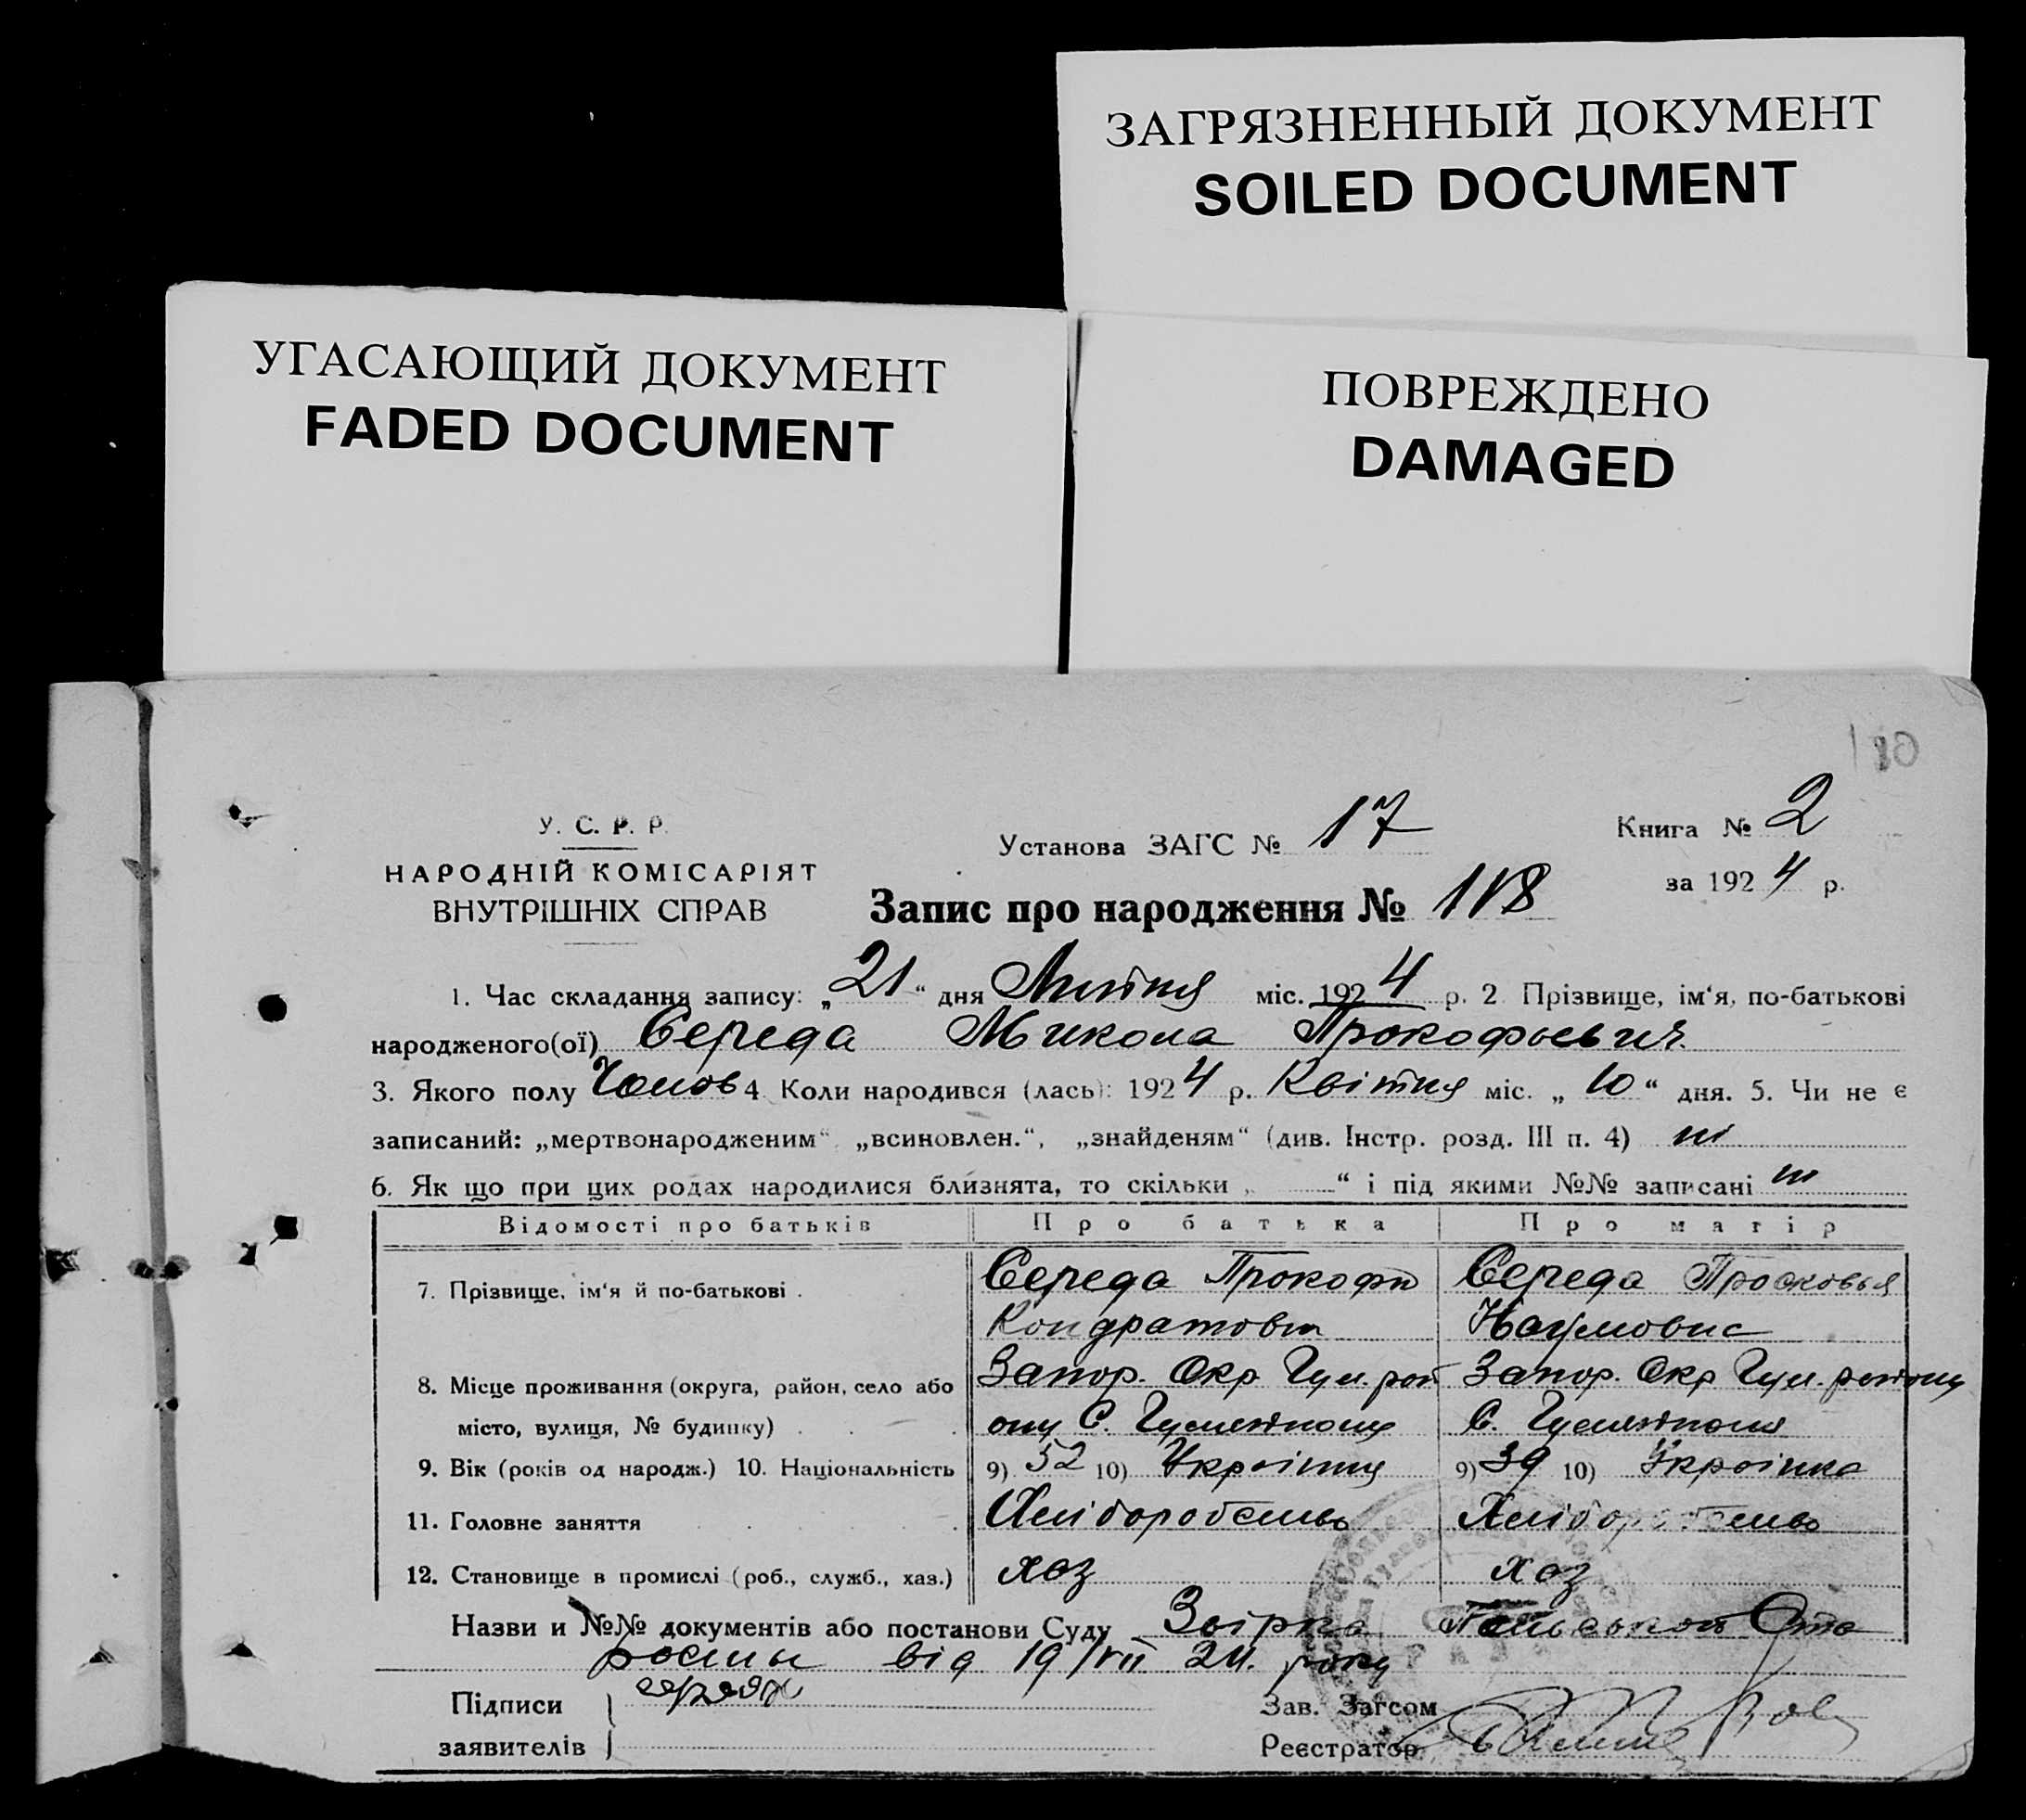 ЗАГРЯЗНЕННЫЙ ДОКУМЕНТ
SOILED DOCUMENT
УГАСАЮЩИЙ ДОКУМЕНТ
FADED DOCUMENT
ПОВРЕЖДЕНО
DAMAGED
У. С. Р. Р.
НАРОДНІЙ КОМІСАРІЯТ
ВНУТРІШНІХ СПРАВ
Установа ЗАГС № 17
Книга № 2
за 1924 р.
Запис про народження № 118
1. Час складання запису: „21“ дня Липня міс. 1924 р. 2 Прізвище, ім‘я, по-батькові
народженого(ої) Середа Микола Прокофьевич
3. Якого полу Чолов 4 Коли народився (лась): 1924 р. Квітня міс. „10“ дня. 5. Чи не є
записаний: „мертвонародженим“ „всиновлен.“, „знайденям“ (див. Інстр. розд. III п. 4) ні
6. Як що при цих родах народилися близнята, то скільки „ “ і під якими №№ записані ні
Відомості про батьків Про батька Про матір
7. Прізвище, ім‘я й по-батькові . Середа Прокофи Середа Просковья
Кондратови Наумовна
8. Місце проживання (округа, район, село або Запор. Окр Гул. рай Запор. Окр Гул. району
місто, вулиця, № будинку) ону С.  С.
9. Вік (років од народж.) 10. Національність 9) 52 10) Украінец 9) 39 10) Украінка
11. Головне заняття Хліборобство Хліборобство
12. Становище в промислі (роб., служб., хаз.) хоз хоз
Назви и №№ документів або постанови Суду
від 19/VII 24. року
Підписи
заявителів
Зав. Загсом
Реєстратор